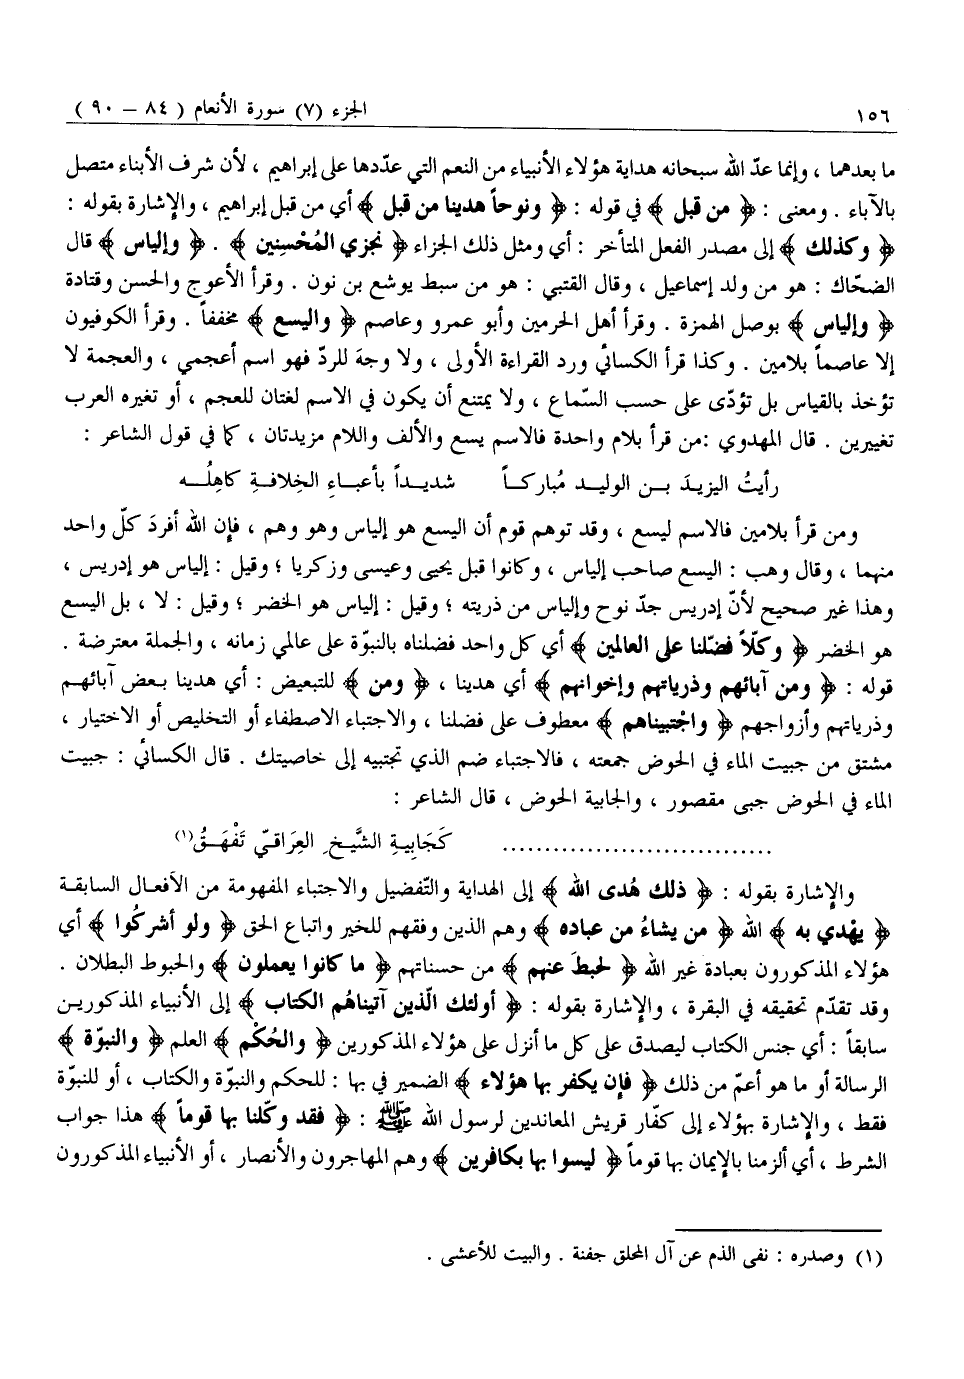 ١٥٦ الجزء (٧) سورة الأنعام ( ٨٤ – ٩٠ )
ما بعدهما ، وإنما عدّ الله سبحانه هداية هؤلاء الأنبياء من النعم التي عدّدها على إبراهيم ، لأن شرف الأبناء متصل
بالآباء . ومعنى : ﴿ من قبل ﴾ في قوله : ﴿ ونوحاً هدينا من قبل ﴾ أي من قبل إبراهيم ، والإشارة بقوله :
﴿ وكذلك ﴾ إلى مصدر الفعل المتأخر : أي ومثل ذلك الجزاء ﴿ نجزي المُحْسِنِين ﴾ . ﴿ وإلياس ﴾ قال
الضحّاك : هو من ولد إسماعيل ، وقال القتبي : هو من سبط يوشع بن نون . وقرأ الأعوج والحسن وقتادة
﴿ وإلياس ﴾ بوصل الهمزة . وقرأ أهل الحرمين وأبو عمرو وعاصم ﴿ واليسع ﴾ مخففاً . وقرأ الكوفيون
إلا عاصماً بلامين . وكذا قرأ الكسائي ورد القراءة الأولى ، ولا وجهَ للردّ فهو اسم أعجمي ، والعجمة لا
تؤخذ بالقياس بل تؤدّى على حسب السّماع ، ولا يمتنع أن يكون في الاسم لغتان للعجم ، أو تغيره العرب
تغييرين . قال المهدوي :من قرأ بلام واحدة فالاسم يسع والألف واللام مزيدتان ، كما في قول الشاعر :
رأيتُ اليزيدَ بـن الوليـد مُباركـاً شديـداً بأعبـاءِ الخِلافـةِ كاهِلُـه
ومن قرأ بلامين فالاسم ليسع ، وقد توهم قوم أن اليسع هو إلياس وهو وهم ، فإن الله أفردَ كلّ واحد
منهما ، وقال وهب : اليسع صاحب إلياس ، وكانوا قبل يحيى وعيسى وزكريا ؛ وقيل : إلياس هو إدريس ،
وهذا غير صحيح لأنّ إدريس جدّ نوح وإلياس من ذريته ؛ وقيل : إلياس هو الخضر ؛ وقيل : لا ، بل اليسع
هو الخضر ﴿ وكلّاً فضّلنا على العالمين ﴾ أي كل واحد فضلناه بالنبوّة على عالمي زمانه ، والجملة معترضة .
قوله : ﴿ ومن آبائهم وذرياتهم وإخوانهم ﴾ أي هدينا ، ﴿ ومن ﴾ للتبعيض : أي هدينا بعض آبائهـم
وذرياتهم وأزواجهم ﴿ واجْتبيناهم ﴾ معطوف على فضلنا ، والاجتباء الاصطفاء أو التخليص أو الاختيار ،
مشتق من جبيت الماء في الحوض جمعته ، فالاجتباء ضم الذي تجتبيه إلى خاصيتك . قال الكسائي : جبيت
الماء في الحوض جبى مقصور ، والجابية الحوض ، قال الشاعر :
................................ كَجَابِيـةِ الشَّيـخِ العِرَاقـيّ تَفْهَـقُ(١)
والإشارة بقوله : ﴿ ذلك هُدى الله ﴾ إلى الهداية والتّفضيل والاجتباء المفهومة من الأفعال السابقـة
﴿ يهْدي به ﴾ الله ﴿ من يشاءُ من عباده ﴾ وهم الذين وفقهم للخير واتباع الحق ﴿ ولو أشركُوا ﴾ أي
هؤلاء المذكورون بعبادة غير الله ﴿ لحبطَ عنهم ﴾ من حسناتهم ﴿ ما كانوا يعملون ﴾ والحبوط البطلان .
وقد تقدّم تحقيقه في البقرة ، والإشارة بقوله : ﴿ أولئك الّذين آتيناهُم الكتاب ﴾ إلى الأنبياء المذكوريـن
سابقاً : أي جنس الكتاب ليصدق على كل ما أنزل على هؤلاء المذكورين ﴿ والحُكْم ﴾ العلم ﴿ والنبوّة ﴾
الرسالة أو ما هو أعمّ من ذلك ﴿ فإن يكفر بها هؤلاء ﴾ الضمير في بها : للحكم والنبوّة والكتاب ، أو للنبوّة
فقط ، والإشارة بهؤلاء إلى كفّار قريش المعاندين لرسول الله ﷺ : ﴿ فقد وكّلنا بها قوماً ﴾ هذا جواب
الشرط ، أي ألزمنا بالإيمان بها قوماً ﴿ ليسوا بها بكافرين ﴾ وهم المهاجرون والأنصار ، أو الأنبياء المذكورون
(١) وصدره : نفى الذم عن آل المحلق جفنة . والبيت للأعشى .